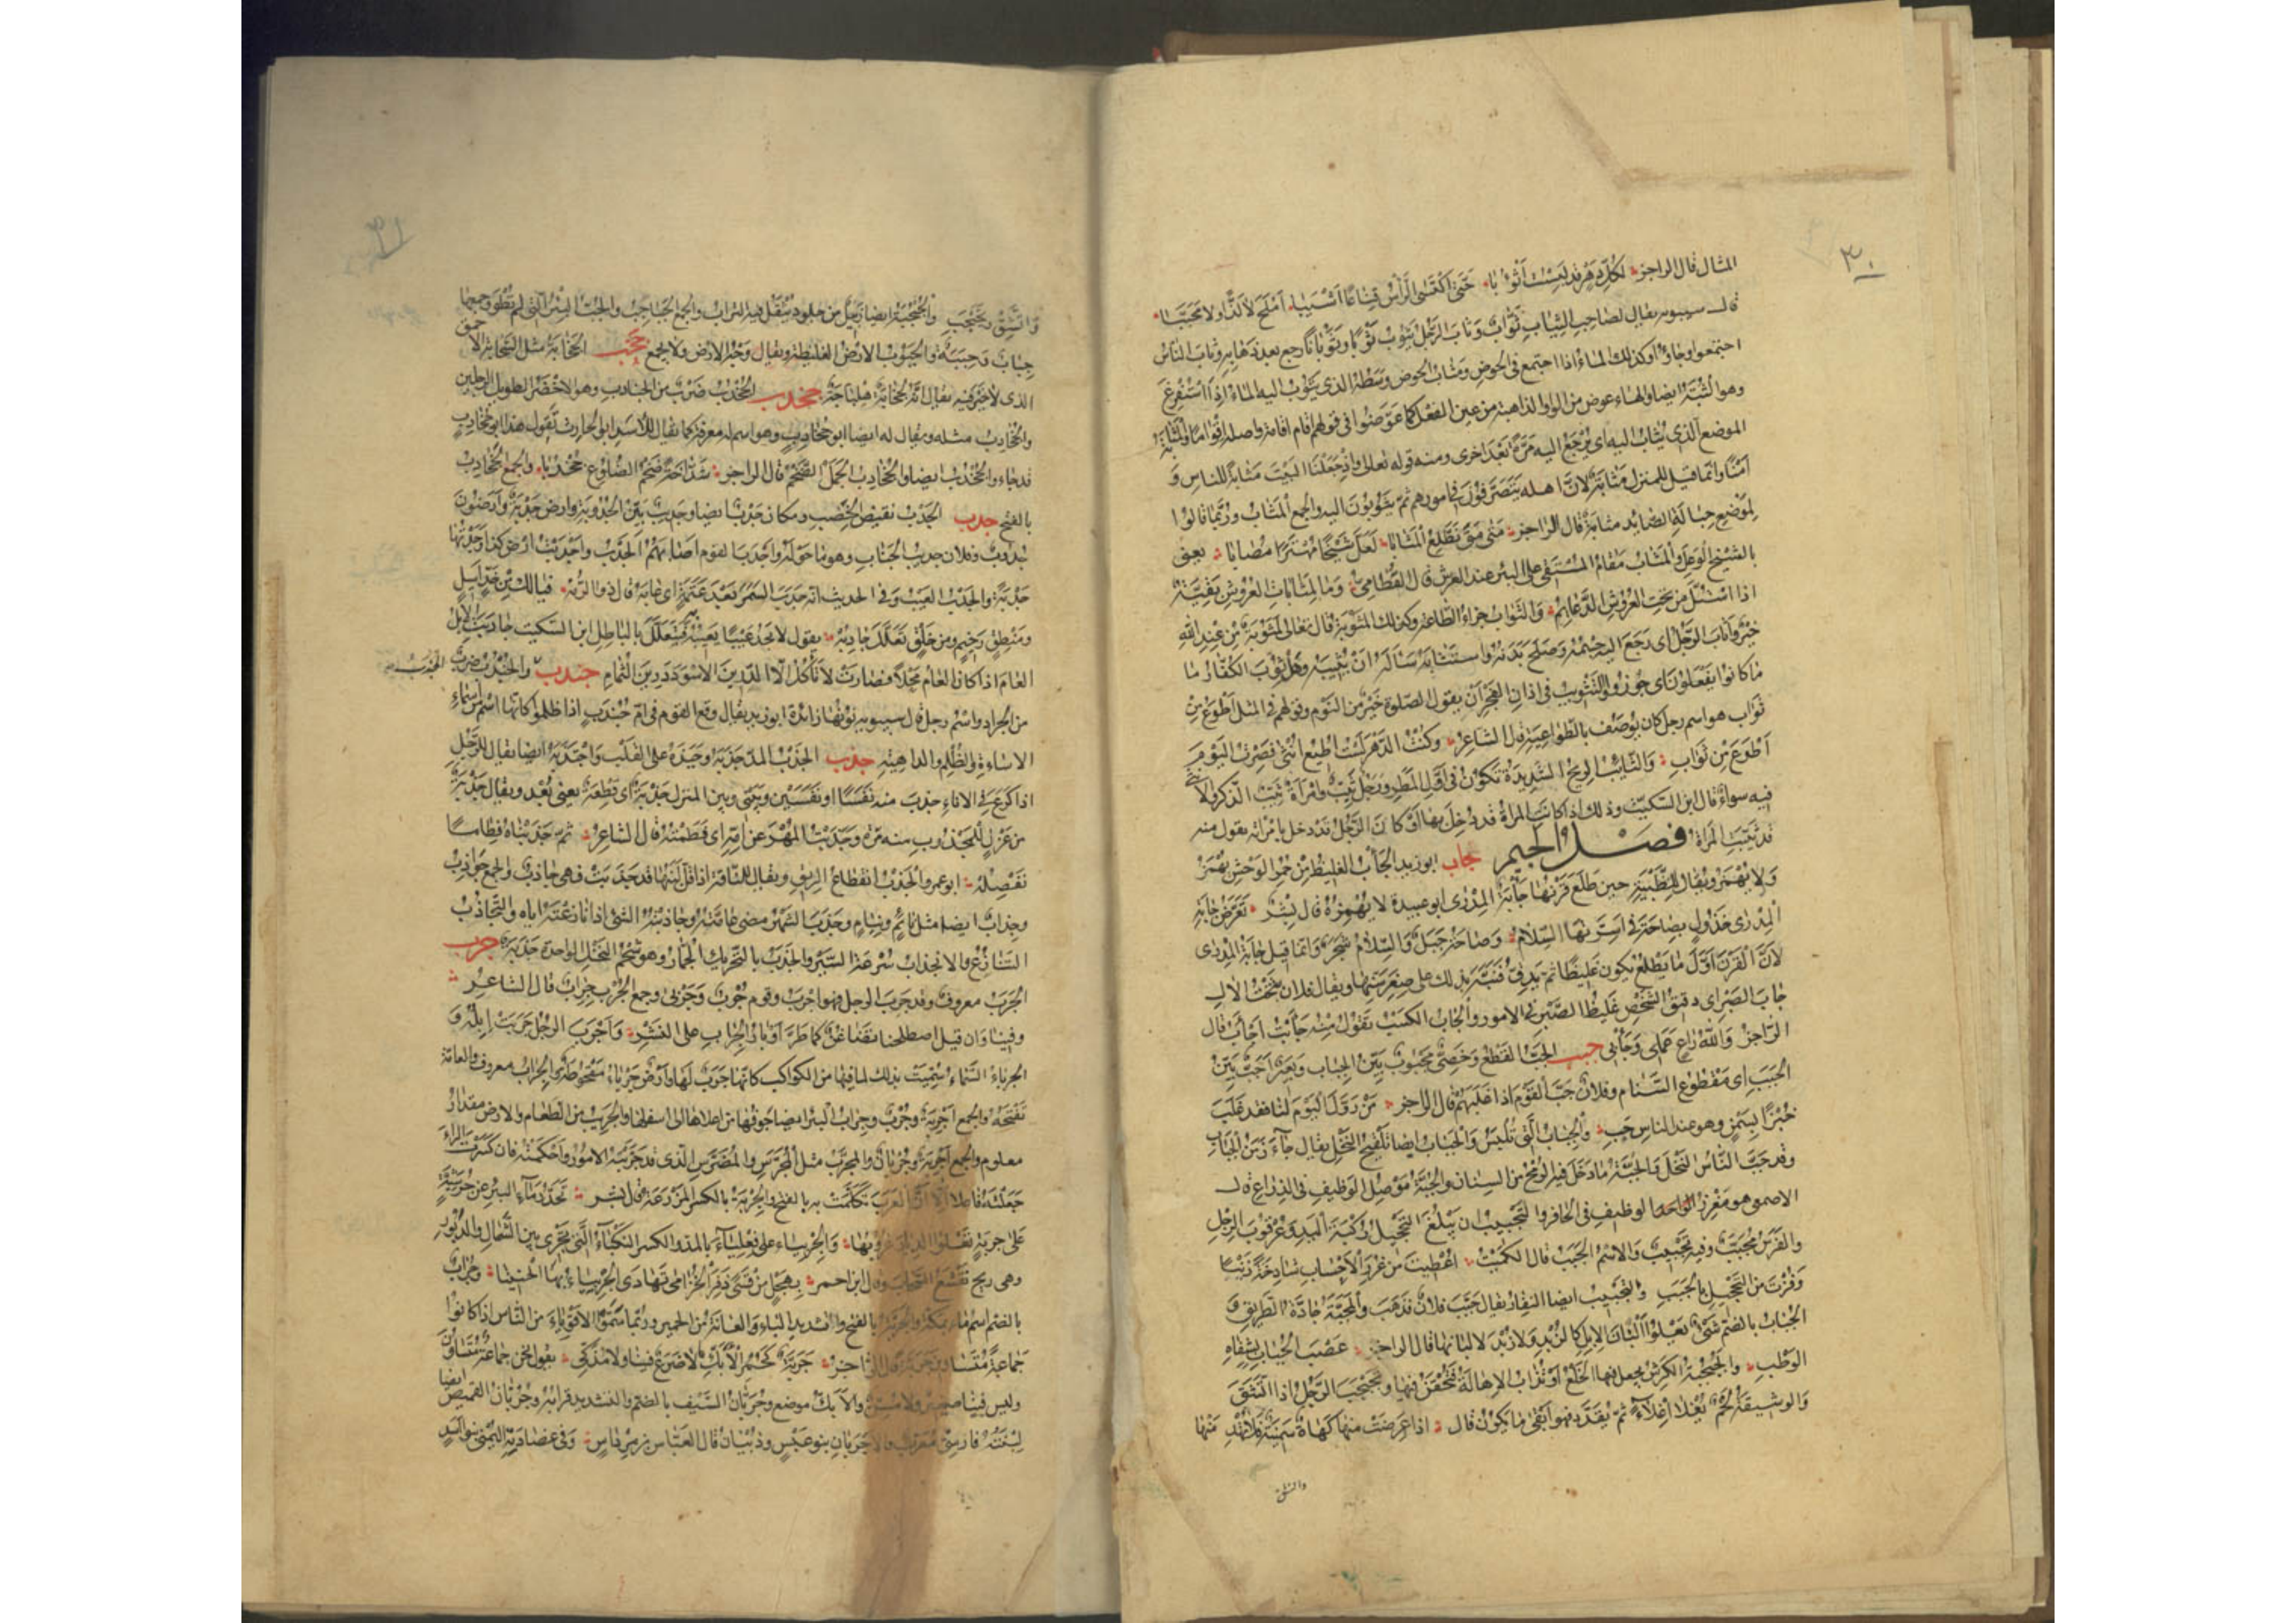 ٣٠
المثال قال الراجز لكل دهر قد لبست اثوبا حتى اكتسى الراس قناعا اشيبا املح لا لذا ولا محببا
قال سيبويه يقال لصاحب الثياب ثواب وثاب الرجل يثوب ثوبا وثوبانا رجع بعد ذهابه وثاب الناس
اجتمعوا وجاؤا وكذلك الماء اذا اجتمع في الحوض ومثاب الحوض وسطه الذي يثوب اليه الماء اذا استفرغ
وهو الثبة ايضا والهاء عوض من الواو الذاهبة من عين الفعل كما عوضوا في قولهم اقام اقامة واصله اقواما والمثابة
الموضع الذي يثاب اليه اي يرجع اليه مرة بعد اخرى ومنه قوله تعالى واذ جعلنا البيت مثابة للناس و
امنا وانما قيل للمنزل مثابة لان اهله يتصرفون في امورهم ثم يثوبون اليه والجمع المثاب وربما قالوا
لموضع حبالة الصائد مثابة قال الراجز متى متى تطلع المثابا لعل شيخا مهترا مصابا يعني
بالشيخ الوعل والمثاب مقام المستقي على البئر عند العرش قال القطامي وما لمثابات العروش بقية
اذا استل من تحت العروش الدعايم والثواب جزاء الطاعة وكذلك المثوبة قال تعالى لمثوبة من عند الله
خير واثاب الرجل اي رجع اليه جسمه وصلح بدنه واستثابه ساله ان يثيبه وهل ثوب الكفار ما
ما كانوا يفعلون اي جوزوا والتثويب في اذان الفجر ان يقول الصلوة خير من النوم وقولهم في المثل اطوع من
ثواب هو اسم رجل كان يوصف بالطواعية قال الشاعر وكنت الدهر لست اطيع انثى فصرت اليوم
اطوع من ثواب والثائب الريح الشديدة تكون في اول المطر ورجل ثيب وامراة ثيب الذكر والانثى
فيه سواء قال ابن السكيت وذلك اذا كانت المراة قد دخل بها او كان الرجل قد دخل بامراته يقول منه
قد ثيبت المراة فصل الجيم جاب ابو زيد الجأب الغليظ من حمر الوحش يهمز
ولا يهمز ويقال للظبية حين طلع قرنها جأبة المدرى ابو عبيدة لا يهمزه قال بشر تعرض جابة
المدرى خذول بصاحة في اسرتها السلام وصاحة جبل والسلام شجر وانما قيل جابة المدرى
لان القرن اول ما يطلع يكون غليظا ثم يدق فنبه بذلك على صغر سنها ويقال فلان شخت الال
جاب الصبر اي دقيق الشخص غليظ الصبر في الامور والجاب الكسب تقول منه جأبت اجأب قال
الراجز والله راع عملي وجأبي جبب الجب القطع وخصي مجبوب بين الجباب وبعير اجب بين
الجبب اي مقطوع السنام وفلان جب القوم اذا غلبهم قال الراجز من رول اليوم لنا فقد غلب
خبزا بسمن وهو عند الناس جب والجباب التي تلبس والجباب ايضا تلقيح النخل يقال جاء زمن الجباب
وقد جب الناس النخل والجبة ما دخل فيه الرمح من السنان والجبة موصل الوظيف في الذراع قال
الاصمعي هو مغرز الوظيف في الحافر والتجبيب ان يبلغ التحجيل ركبة اليد وعرقوب الرجل
والفرس مجبب وفيه تجبيب والاسم الجبب قال الكميت اعطيت من غرر الاحساب شادخة زينا
وفزت من التحجيل بالجبب والتجبيب ايضا النفار يقال جبب فلان فذهب والمجبة جادة الطريق و
الجباب بالضم شيء يعلوا البان الابل كالزبد ولا زبد لالبانها قال الراجز عصب الجباب بشفاه
الوطب والجبجبة الكرش يجعل فيها الخلع او تذاب الاهالة فتحقن فيها وتجبجب الرجل اذا اتشق
والوشيقة لحم يغلا اغلاة ثم يقدد فهو ابقى ما يكون قال اذا عرضت منها كهاة سمينة فلا تهد منها
واتشق
٣١
واتشق وتجبجب والجبجبة ايضا زبيل من جلود ينقل فيه التراب والجمع الجباجب والجب البئر التي لم تطو وجمعها
جباب وجببة والجبوب الارض الغليظة ويقال وجه الارض ولا يجمع جخب الجخابة مثل السحابة الاحمق
الذي لا خير فيه يقال انه لجخابة هلباجة جخدب الجخدب ضرب من الجنادب وهو الاخضر الطويل الرجلين
والجخادب مثله ويقال له ايضا ابو جخادب وهو اسم له معرفة كما يقال للاسد ابو الحارث تقول هذا ابو جخادب
قد جاء والجخدب ايضا والجخادب الجمل الضخم قال الراجز شداخة ضخم الضلوع جخدبا والجمع الجخادب
بالفتح جدب الجدب نقيض الخصب ومكان جدب ايضا وجديب بين الجدوبة وارض جدبة وارضون
جدوب وفلان جديب الجناب وهو ما حوله واجدب القوم اصابهم الجدب واجدبت ارض كذا وجدتها
جدبة والجدب العيب وفي الحديث انه جدب السمر بعد عتمة اي عابه قال ذو الرمة فيا لك من خد اسيل
ومنطق رخيم ومن خلق تعلل جادبه يقول لا يجد عيبا يعيبه فيتعلل بالباطل ابن السكيت جادبت الابل
العام اذا كان العام محلا فصارت لا تاكل الا الدرين الاسود درين الثمام جندب والجندب ضرب
الجندب
من الجراد واسم رجل قال سيبويه نونها زائدة ابو زيد يقال وقع القوم في ام جندب اذا ظلموا كانها اسم من اسماء
الاساءة والظلم والداهية جذب الجذب المد جذبه وجبذه على القلب واجتذبه ايضا يقال للرجل
اذا كرع في الاناء جذب منه نفسا او نفسين وبيني وبين المنزل جذبة اي قطعة يعني بعد ويقال جذبة
من غزل للمجذوب منه مرة وجذبت المهر عن امه اي فطمته قال الشاعر ثم جذبناه فطاما
نفصله ابو عمرو الجذب انقطاع الريق ويقال للناقة اذا قل لبنها قد جذبت فهي جاذب والجمع جواذب
وجذاب ايضا مثل نائم ونيام وجذب الشهر مضى عامته وجاذبته الشيء اذا نازعته اياه والتجاذب
التنازع والانجذاب سرعة السير والجذب بالتحريك الجمار وهو شحم النخل الواحدة جذبة جرب
الجرب معروف وقد جرب الرجل فهو اجرب وقوم جرب وجربى وجمع الجرب جراب قال الشاعر
وفينا وان قيل اصطلحنا تضاغن كما طر اوبار الجراب على النشر واجرب الرجل جربت ابله و
الجرباء السماء سميت بذلك لما فيها من الكواكب كانها جرب لها وارض جرباء مقحوطة والجراب معروف والعامة
تفتحه والجمع اجربة وجرب وجراب البئر ايضا جوفها من اعلاها الى اسفلها والجريب من الطعام والارض مقدار
معلوم والجمع اجربة وجربان والمجرب مثل المجرس والمضرس الذي قد جربته الامور واحكمته فان كسرت الراء
جعلته فاعلا الا ان العرب تكلمت به بالفتح والجربة بالكسر المزرعة قال بشر تحدر ماء البئر عن جرشية
على جربة تعلو الدبار غروبها والجربياء على فعلياء بالمد والكسر النكباء التي تجري بين الشمال والدبور
وهي ريح تقشع السحاب قال ابن احمر بهجل من قسى ذفر الخزامى تهادى الجربياء به الحنينا وجراب
بالضم اسم ماء بمكة والجربة بالفتح والتشديد الباء والعانة من الحمير وربما سموا الاقوياء من الناس اذا كانوا
جماعة متساوين جربة قال الراجز جربة كحمر الابك لا ضرع فينا ولا مذكي يقول نحن جماعة متساوون
وليس فينا صغير ولا مسن والابك موضع وجربان السيف بالضم والتشديد قرابه وجربان القميص ايضا
لبنته فارسي معرب والاجربان بنو عبس وذبيان قال العباس بن مرداس وفي عضادته اليمنى بنو اسد